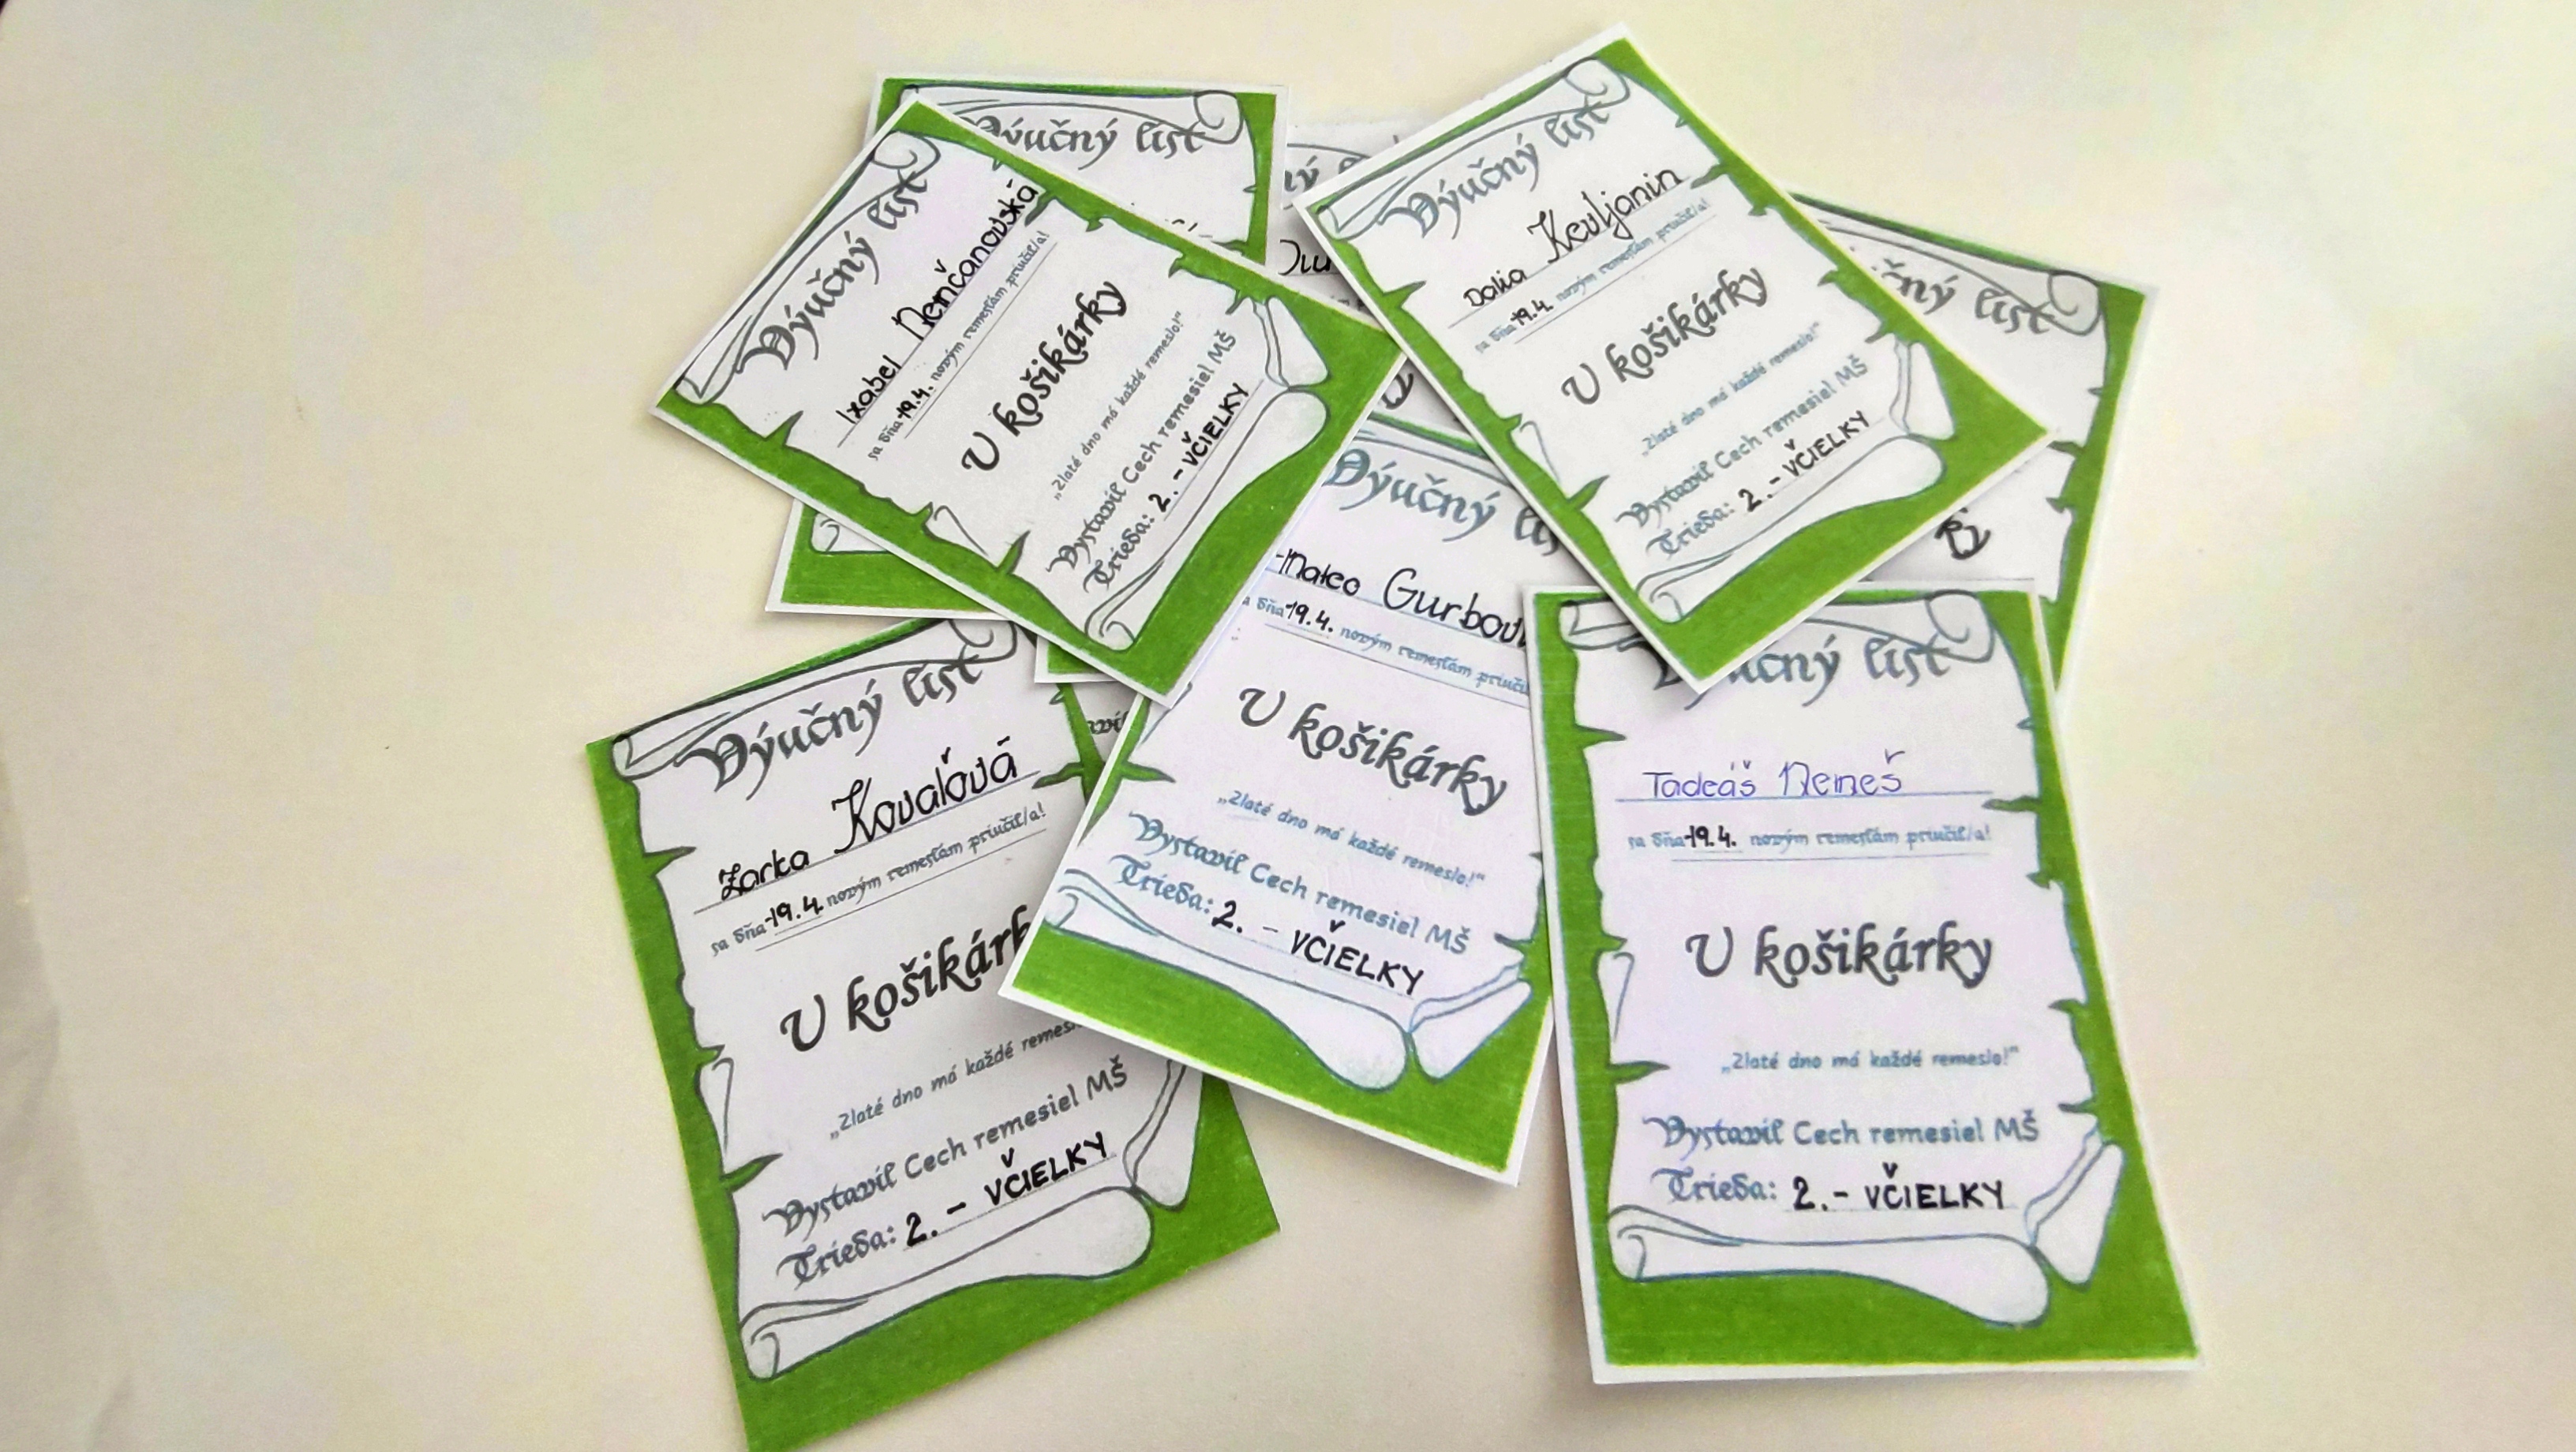 Výučný list
Výučný list
Izabel Nemčanovská
sa dňa 19.4. novým remeslám priučil/a!
U košikárky
„Zlaté dno má každé remeslo!“
Vystavil Cech remesiel MŠ
Trieda: 2. - VČIELKY
Výučný list
Dalia Kevljanin
sa dňa 19.4. novým remeslám priučil/a!
U košikárky
„Zlaté dno má každé remeslo!“
Vystavil Cech remesiel MŠ
Trieda: 2. - VČIELKY
list
Výučný
Mateo
19.4. novým remeslám
U košikárky
„Zlaté dno má každé remeslo!“
Vystavil Cech remesiel MŠ
Trieda: 2. - VČIELKY
Výučný list
Žarka Kovaľová
sa dňa 19.4. novým remeslám priučil/a!
U košikárk
„Zlaté dno má každé
Vystavil Cech remesiel MŠ
Trieda: 2. - VČIELKY
Výučný list
Tadeáš Nemeš
sa dňa 19.4. novým remeslám priučil/a!
U košikárky
„Zlaté dno má každé remeslo!“
Vystavil Cech remesiel MŠ
Trieda: 2. - VČIELKY